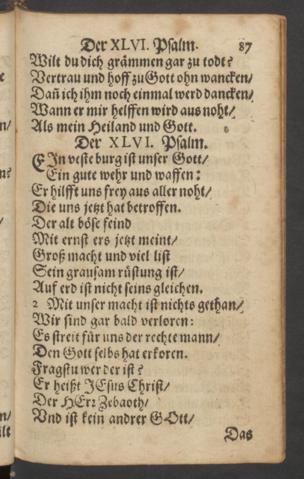 Der XLVI. Psalm. 87
Wilt du dich grämmen gar zu todt?
Vertrau und hoff zu Gott ohn wancken/
Dañ ich ihm noch einmal werd dancken/
Wann er mir helffen wird aus noht/
Als mein Heiland und Gott.
Der XLVI. Psalm.
EIn veste burg ist unser Gott/
Ein gute wehr und waffen:
Er hilfft uns frey aus aller noht/
Die uns jetzt hat betroffen.
Der alt böse feind
Mit ernst ers jetzt meint/
Groß macht und viel list
Sein grausam rüstung ist/
Auf erd ist nicht seins gleichen.
2 Mit unser macht ist nichts gethan/
Wir sind gar bald verloren:
Es streit für uns der rechte mann/
Den Gott selbs hat erkoren.
Fragstu wer der ist?
Er heißt JEsus Christ/
Der HErr Zebaoth/
Vnd ist kein andrer GOtt/
Das